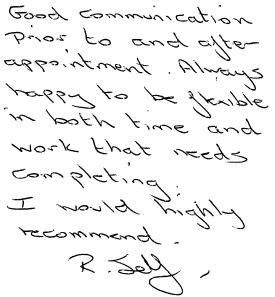 Good communication
prior to and after
appointment. Always
happy to be flexible
in both time and
work that needs
completing.
I would highly
recommend.
R. Self